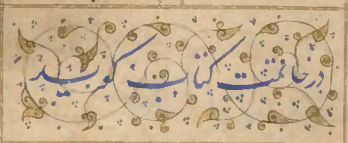 در خاتمت کتاب گوید